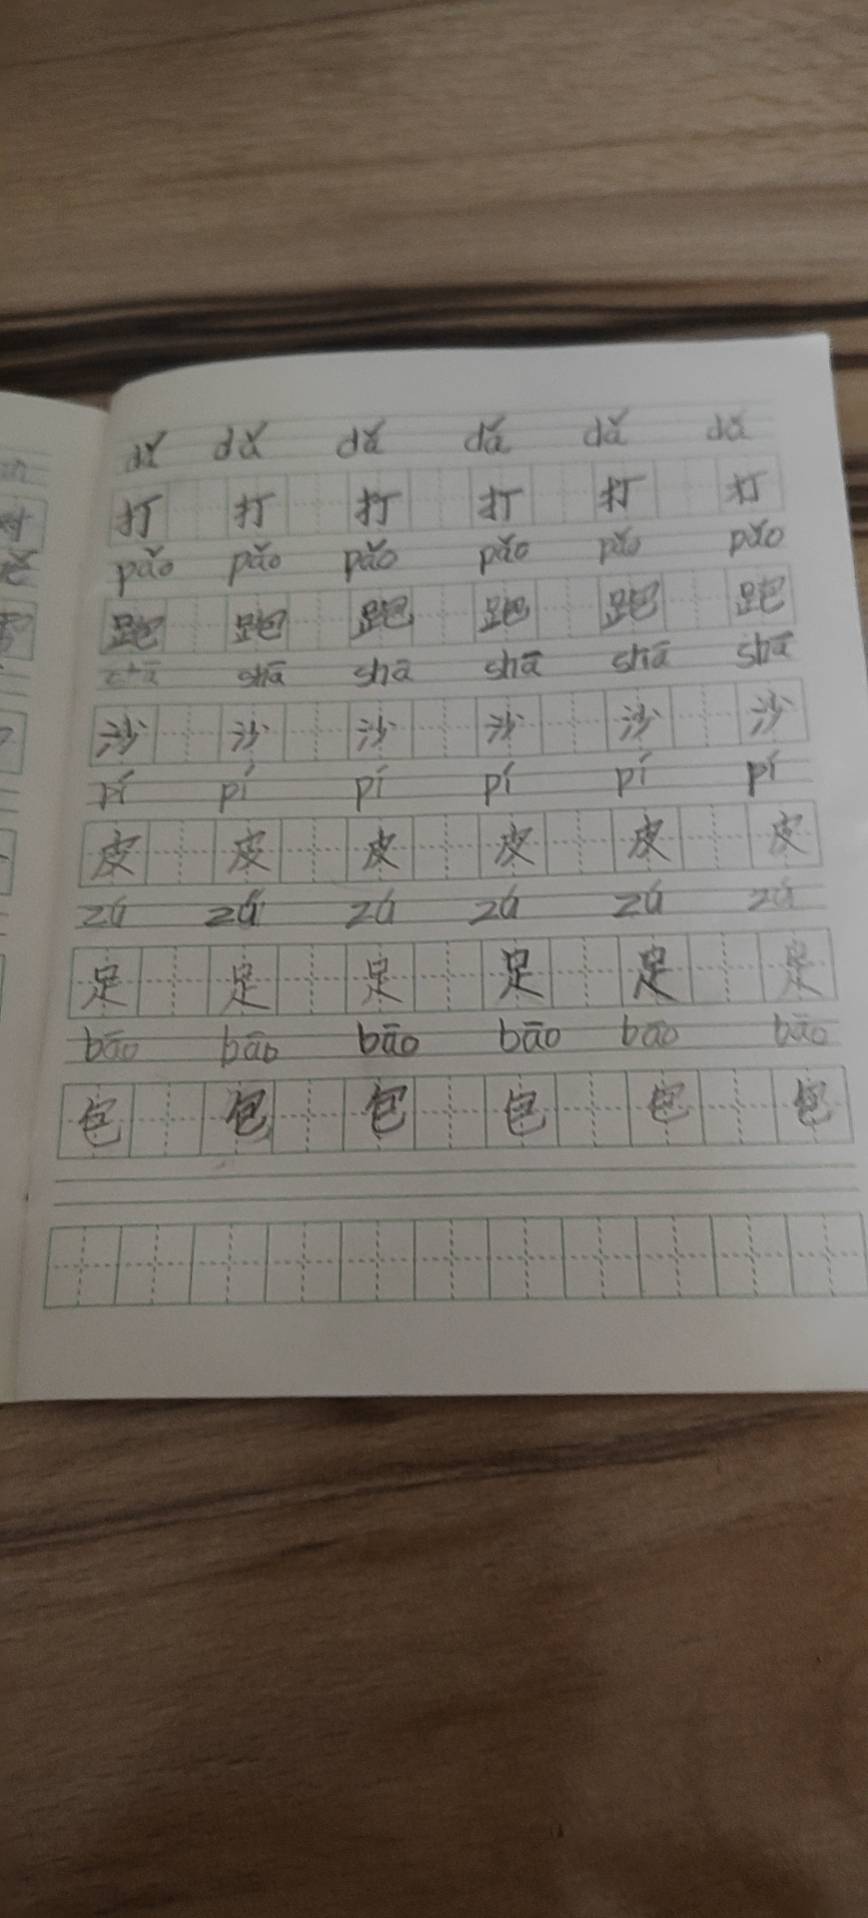 dǎ dǎ dǎ dǎ dǎ dǎ
打 打 打 打 打 打
pǎo pǎo pǎo pǎo pǎo pǎo
跑 跑 跑 跑 跑 跑
shā shā shā shā shā shā
沙 沙 沙 沙 沙 沙
pí pí pí pí pí pí
皮 皮 皮 皮 皮 皮
zú zú zú zú zú zú
足 足 足 足 足 足
bāo bāo bāo bāo bāo bāo
包 包 包 包 包 包